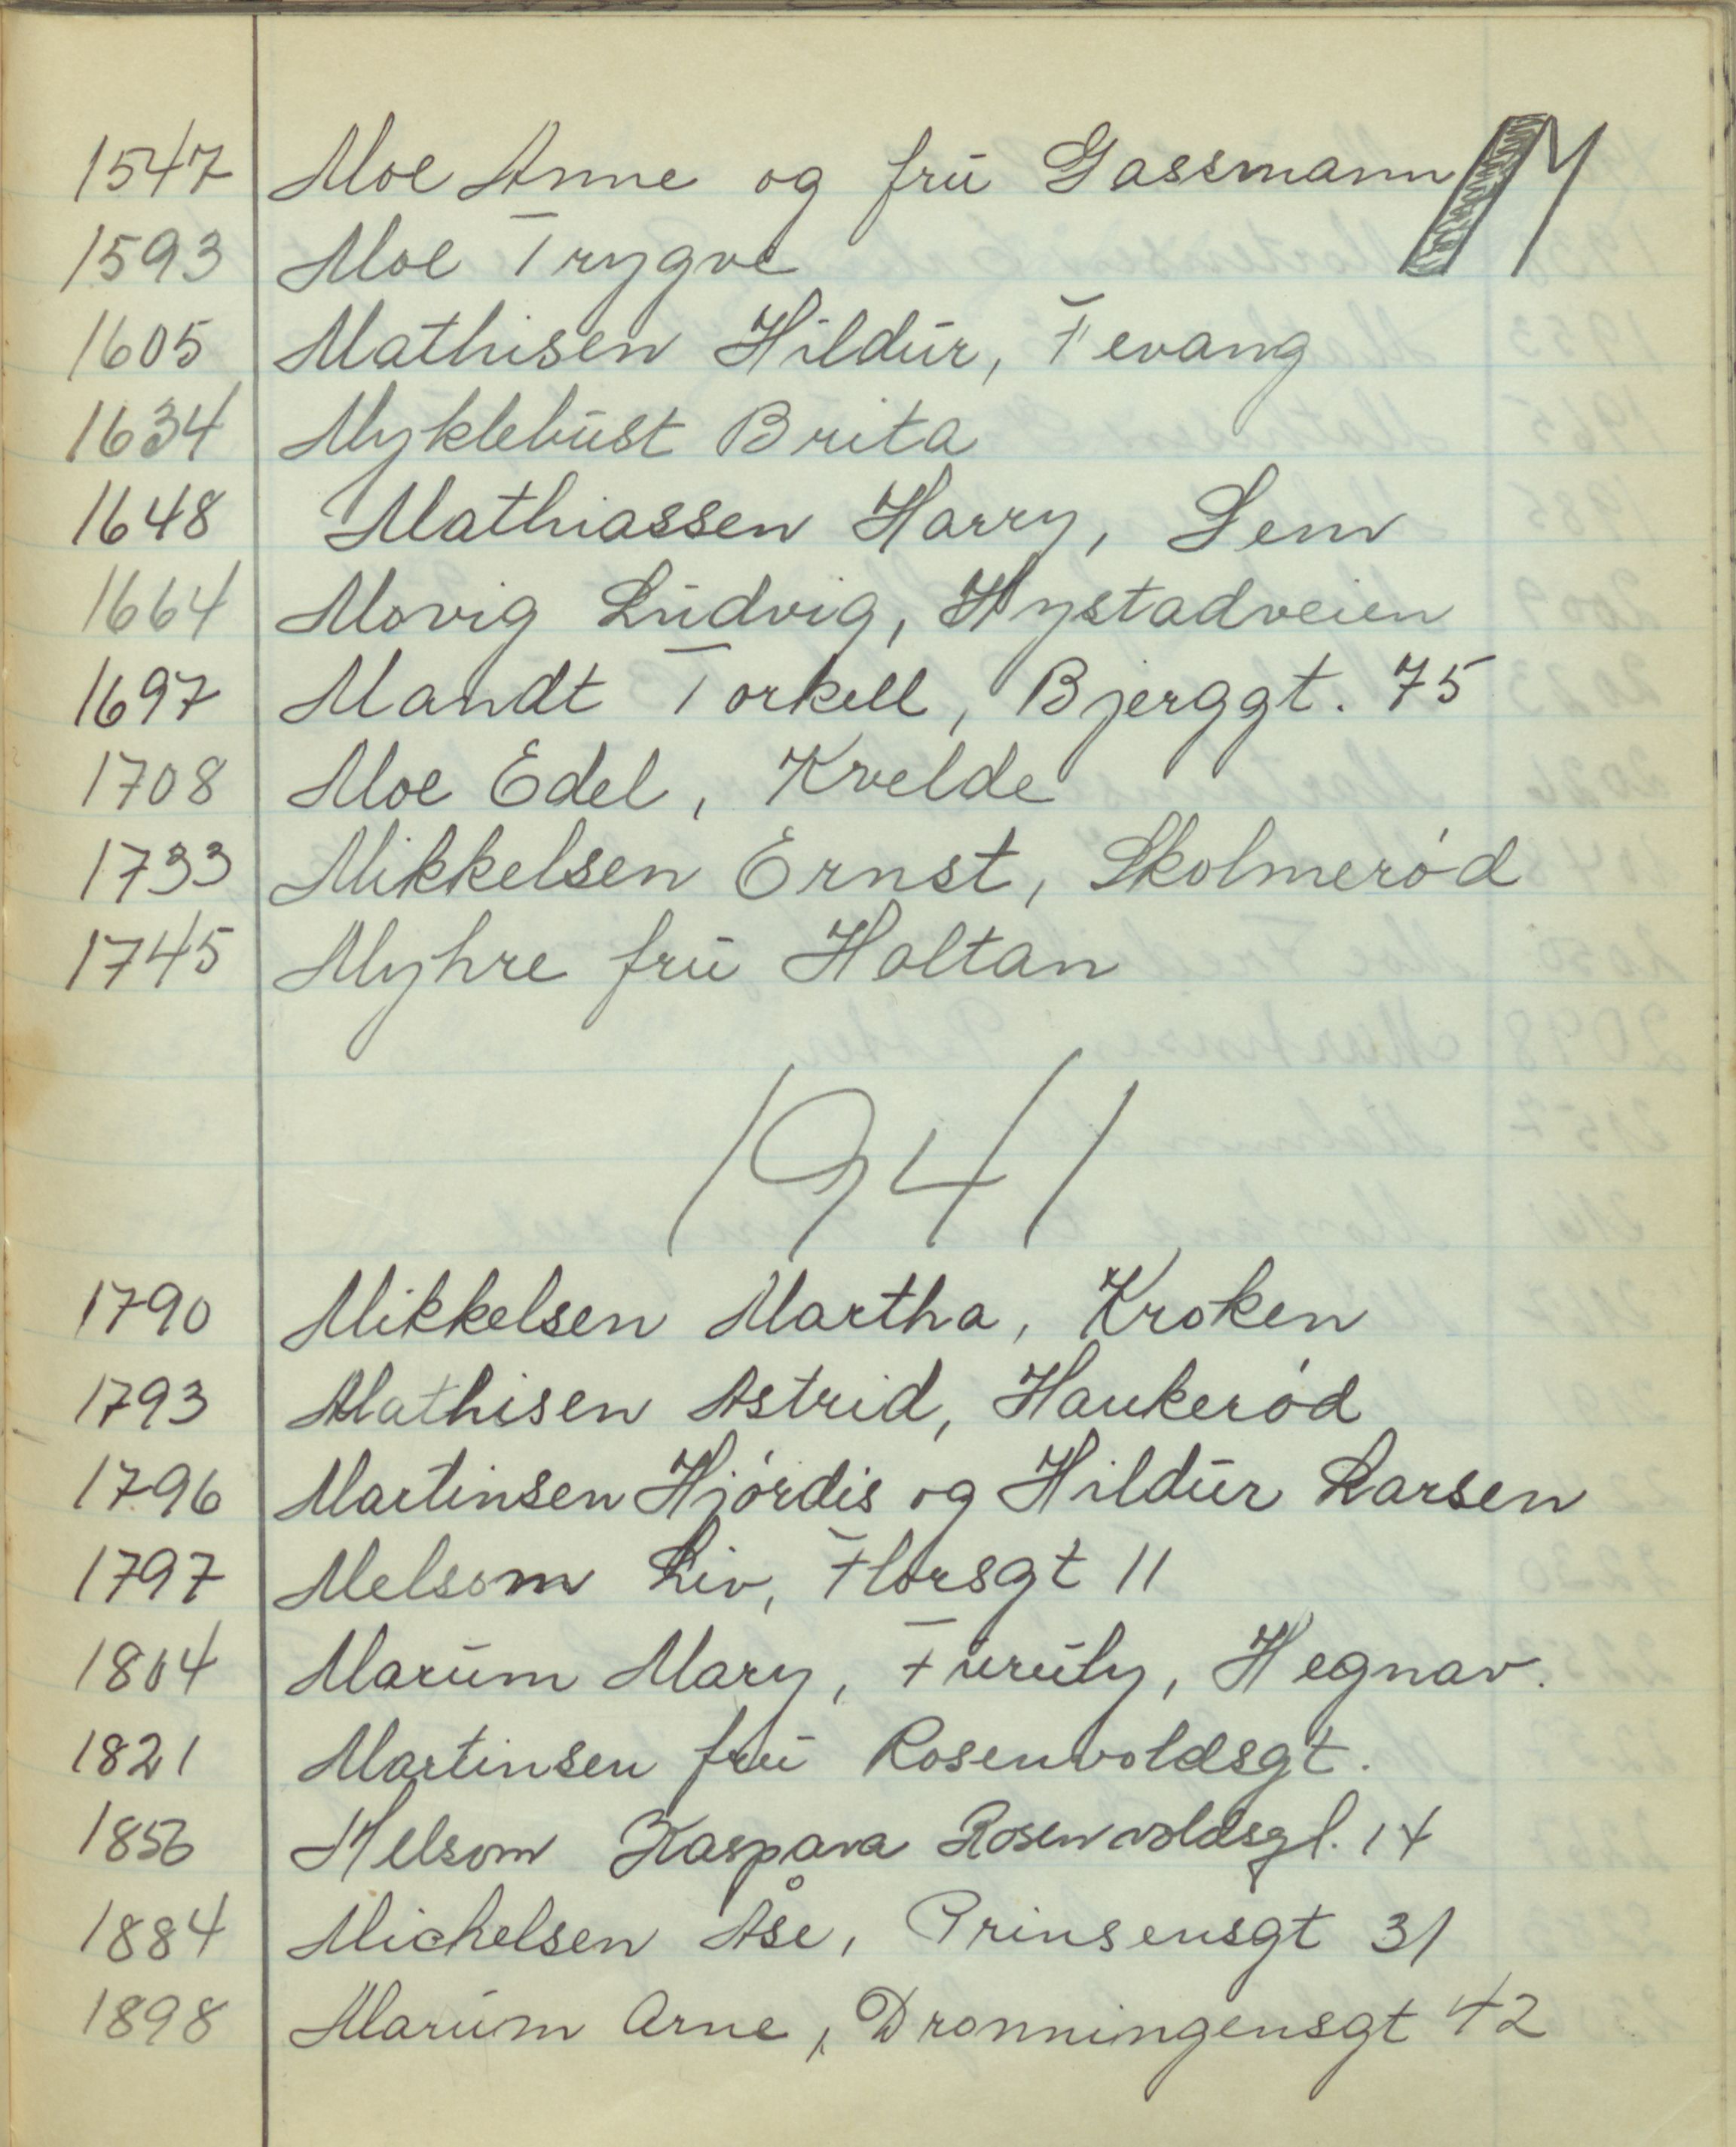 M
1547 Moe Anne og frú Gassmann
1593 Moe Trygve
1605 Mathisen Hildúr, Fevang
1634 Myklebúst Brita
1648 Mathiassen Harry, Sem
1664 Movig Lúdvig, Hystadveien
1697 Mandt Torkell, Bjerggt. 75
1708 Moe Edel, Kvelde
1733 Mikkelsen Ernst, Skolmerød
1745 Myhre frú Holtan
1941
1790 Mikkelsen Martha, Kroken
1793 Mathisen Astrid, Haukerød
1796 Martinsen Hjørdis og Hildúr Larsen
1797 Melsom Liv, Florsgt 11
1804 Marúm Mary, Fúrúly, Hegnav.
1821 Martinsen frú Rosenvoldsgt.
1856 Melsom Kaspara Rosenvoldsgt. 14
1884 Michelsen Åse, Prinsensgt 31
1898 Marúm Arne, Dronningensgt 42